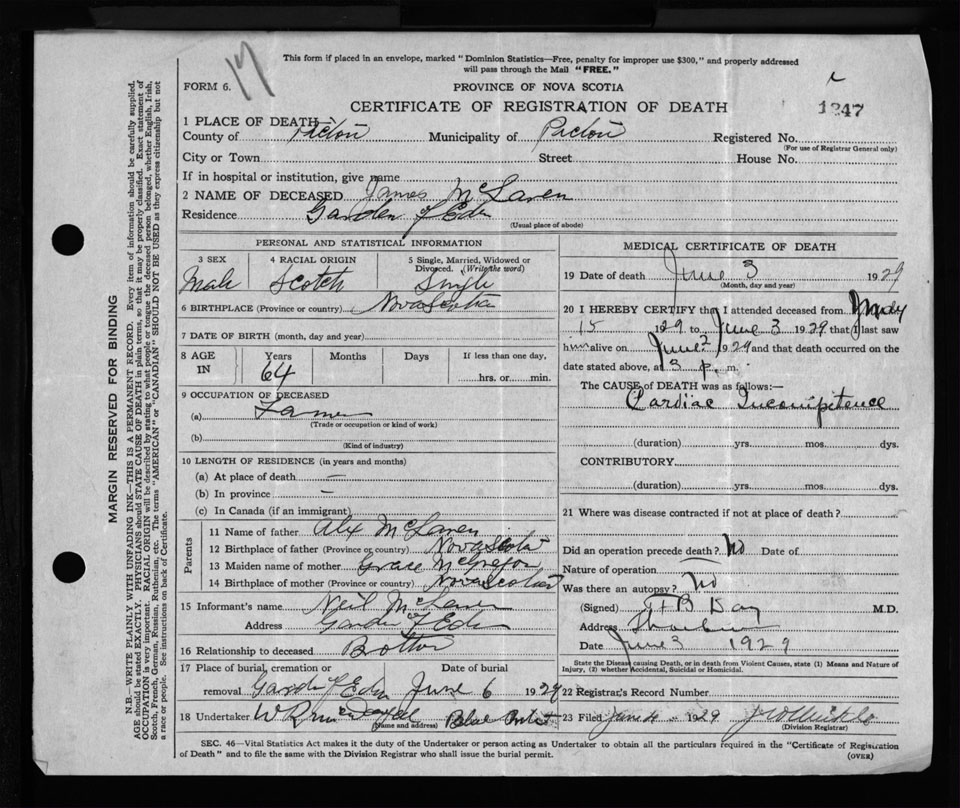 This form if placed in an envelope, marked "Dominion Statistics—Free, penalty for improper use $300," and properly addressed
will pass through the Mail "FREE."
17
FORM 6.
PROVINCE OF NOVA SCOTIA
CERTIFICATE OF REGISTRATION OF DEATH
1247
1 PLACE OF DEATH
County of Pictou Municipality of Pictou Registered No.
(For use of Registrar General only)
City or Town Street House No.
If in hospital or institution, give name
2 NAME OF DECEASED James McLaren
Residence Garden of Eden
(Usual place of abode)
PERSONAL AND STATISTICAL INFORMATION
3 SEX 4 RACIAL ORIGIN 5 Single, Married, Widowed or Divorced. (Write the word)
Male Scotch Single
6 BIRTHPLACE (Province or country) Nova Scotia
7 DATE OF BIRTH (month, day and year)
8 AGE IN Years Months Days If less than one day,
64 hrs. or min.
9 OCCUPATION OF DECEASED
(a) Farmer
(Trade or occupation or kind of work)
(b)
(Kind of industry)
10 LENGTH OF RESIDENCE (in years and months)
(a) At place of death —
(b) In province —
(c) In Canada (if an immigrant)
Parents
11 Name of father Alex McLaren
12 Birthplace of father (Province or country) Nova Scotia
13 Maiden name of mother Grace McGregor
14 Birthplace of mother (Province or country) Nova Scotia
15 Informant's name Neil McLaren
Address Garden of Eden
16 Relationship to deceased Brother
17 Place of burial, cremation or Date of burial
removal Garden of Eden June 6 1929
18 Undertaker W R Blue
(Name and address)
MEDICAL CERTIFICATE OF DEATH
19 Date of death June 3 1929
(Month, day and year)
20 I HEREBY CERTIFY that I attended deceased from May
15 1929 to June 3 1929 that I last saw
him alive on June 2 1929 and that death occurred on the
date stated above, at 3 p. m.
The CAUSE of DEATH was as follows:—
Cardiac Incompetence
(duration) yrs. mos. dys.
CONTRIBUTORY
(duration) yrs. mos. dys.
21 Where was disease contracted if not at place of death?
Did an operation precede death? No Date of
Nature of operation
Was there an autopsy? No
(Signed) B Day M.D.
Address
Date June 3 1929
State the Disease causing Death, or in death from Violent Causes, state (1) Means and Nature of
Injury, (2) whether Accidental, Suicidal or Homicidal.
22 Registrar's Record Number
23 Filed June 1929
(Division Registrar)
SEC. 46—Vital Statistics Act makes it the duty of the Undertaker or person acting as Undertaker to obtain all the particulars required in the "Certificate of Registration
of Death" and to file the same with the Division Registrar who shall issue the burial permit.
(OVER)
MARGIN RESERVED FOR BINDING
N.B.—WRITE PLAINLY WITH UNFADING INK—THIS IS A PERMANENT RECORD. Every item of information should be carefully supplied.
AGE should be stated EXACTLY. PHYSICIANS should STATE CAUSE OF DEATH in plain terms, so that it may be properly classified. Exact statement of
OCCUPATION is very important. RACIAL ORIGIN will be described by stating to what people or tongue the deceased person belonged, whether English, Irish,
Scotch, French, German, Russian, Ruthenian, etc. The terms "AMERICAN" or "CANADIAN" SHOULD NOT BE USED as they express citizenship but not
a race or people. See instructions on back of Certificate.